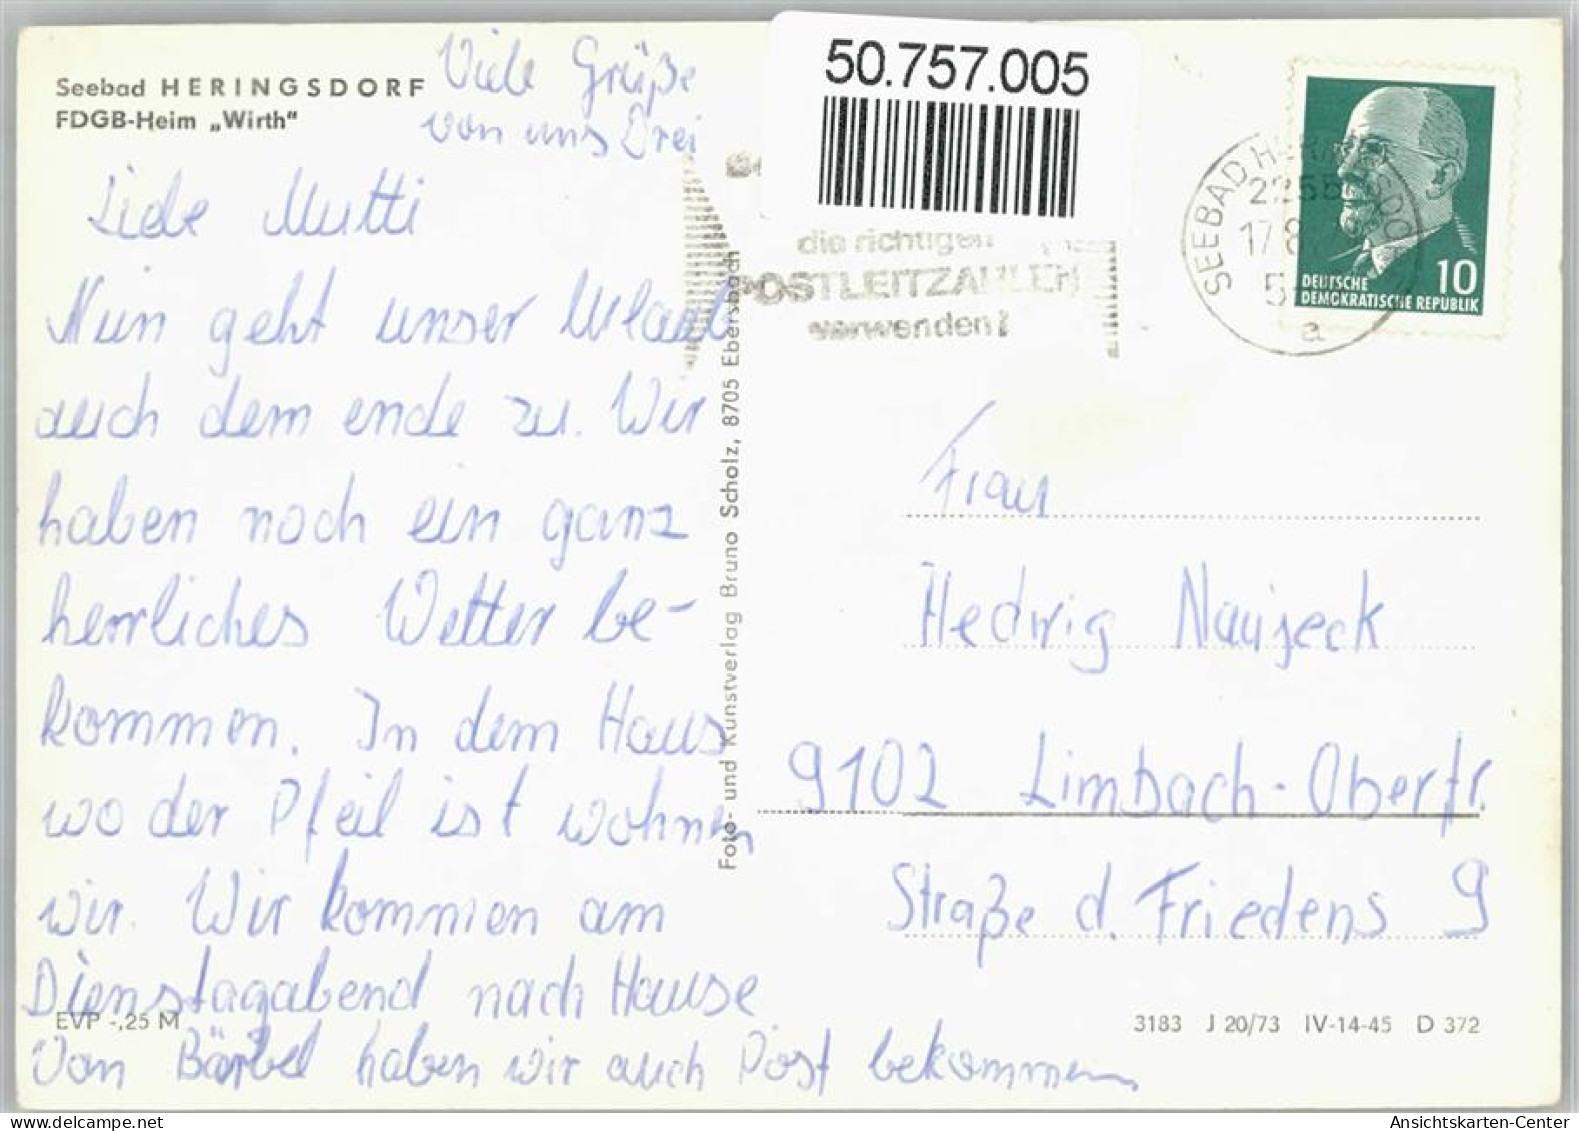 Seebad HERINGSDORF
FDGB-Heim „Wirth"
Viele Grüße
von uns Drei
Liebe Mutti
Nun geht unser Urlaub
auch dem ende zu. Wir
haben noch ein ganz
herrliches Wetter be-
kommen. In dem Haus
wo der Pfeil ist wohnen
wir. Wir kommen am
Dienstagabend nach Hause
Von Bärbel haben wir auch Post bekommen
EVP -,25 M
Foto- und Kunstverlag Bruno Scholz, 8705 Ebersbach
50.757.005
die richtigen
POSTLEITZAHLEN
verwenden!
SEEBAD HERINGSDORF
2255
17.8
a
10
DEUTSCHE
DEMOKRATISCHE REPUBLIK
Frau
Hedwig Naujeck
9102 Limbach-Oberfr.
Straße d. Friedens 9
3183 J 20/73 IV-14-45 D 372
Ansichtskarten-Center